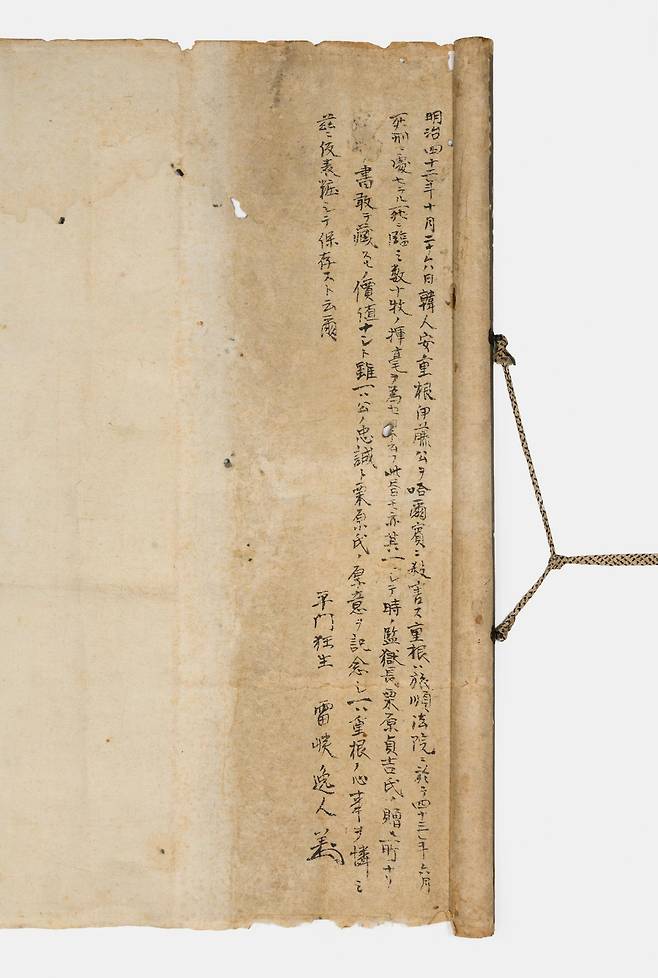 明治四十二年十月二十六日韓人安重根伊藤公ヲ哈爾賓ニ殺害ス重根ハ旅順法院ニ於テ四十三年六月
死刑ニ處セラル死ニ臨ミ数十枚ノ揮毫ヲ為セリ此書モ亦其一ニシテ時ノ監獄長栗原貞吉氏ノ贈ル所ナリ
書敢テ藏スルノ價値ナシト雖一ハ公ノ忠誠ト栗原氏ノ厚意ヲ記念シ一ハ重根ノ心事ヲ憐ミ
茲ニ仮表粧シテ保存スト云爾
平門狂生 雷